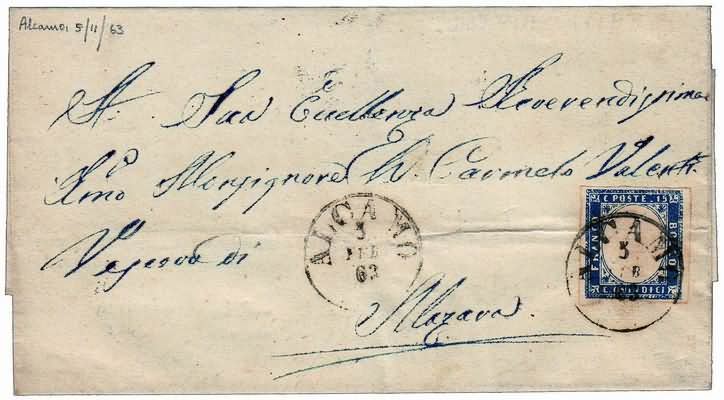 Alcamo, 5/11/63
A Sua Eccellenza Reverendissima
Monsignore D. Carmelo Valenti
Vescovo di
Mazara
ALCAMO
5
FEB
63
C. POSTE. 15
FRANCO
BOLLO
C. QUINDICI
ALCAMO
5
FEB
63